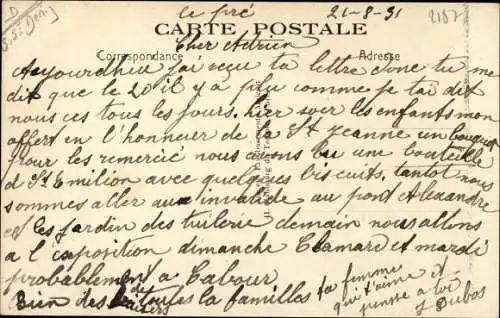 Le pré 21-8-31 2187
CARTE POSTALE
Cher Adrien
Correspondance Adresse
Aujourdhui j'ai reçu ta lettre donc tu me
dit que le 20 il y a plu comme je tai dit
nous ces tous les jours. hier soir les enfants mon
offert en l'honneur de la St Jeanne un bouquet
pour les remercié nous avons bu une bouteille
d St Emilion avec quelques biscuits, tantot nous
sommes aller aux invalide au pont Alexandre
et les jardin des tuilerie demain nous allons
a l'exposition dimanche Clamard et mardi
probablement a Cabour
Bien des baisers de toutes la familles ta femme
qui t'aime et
pense a toi
J Dubos